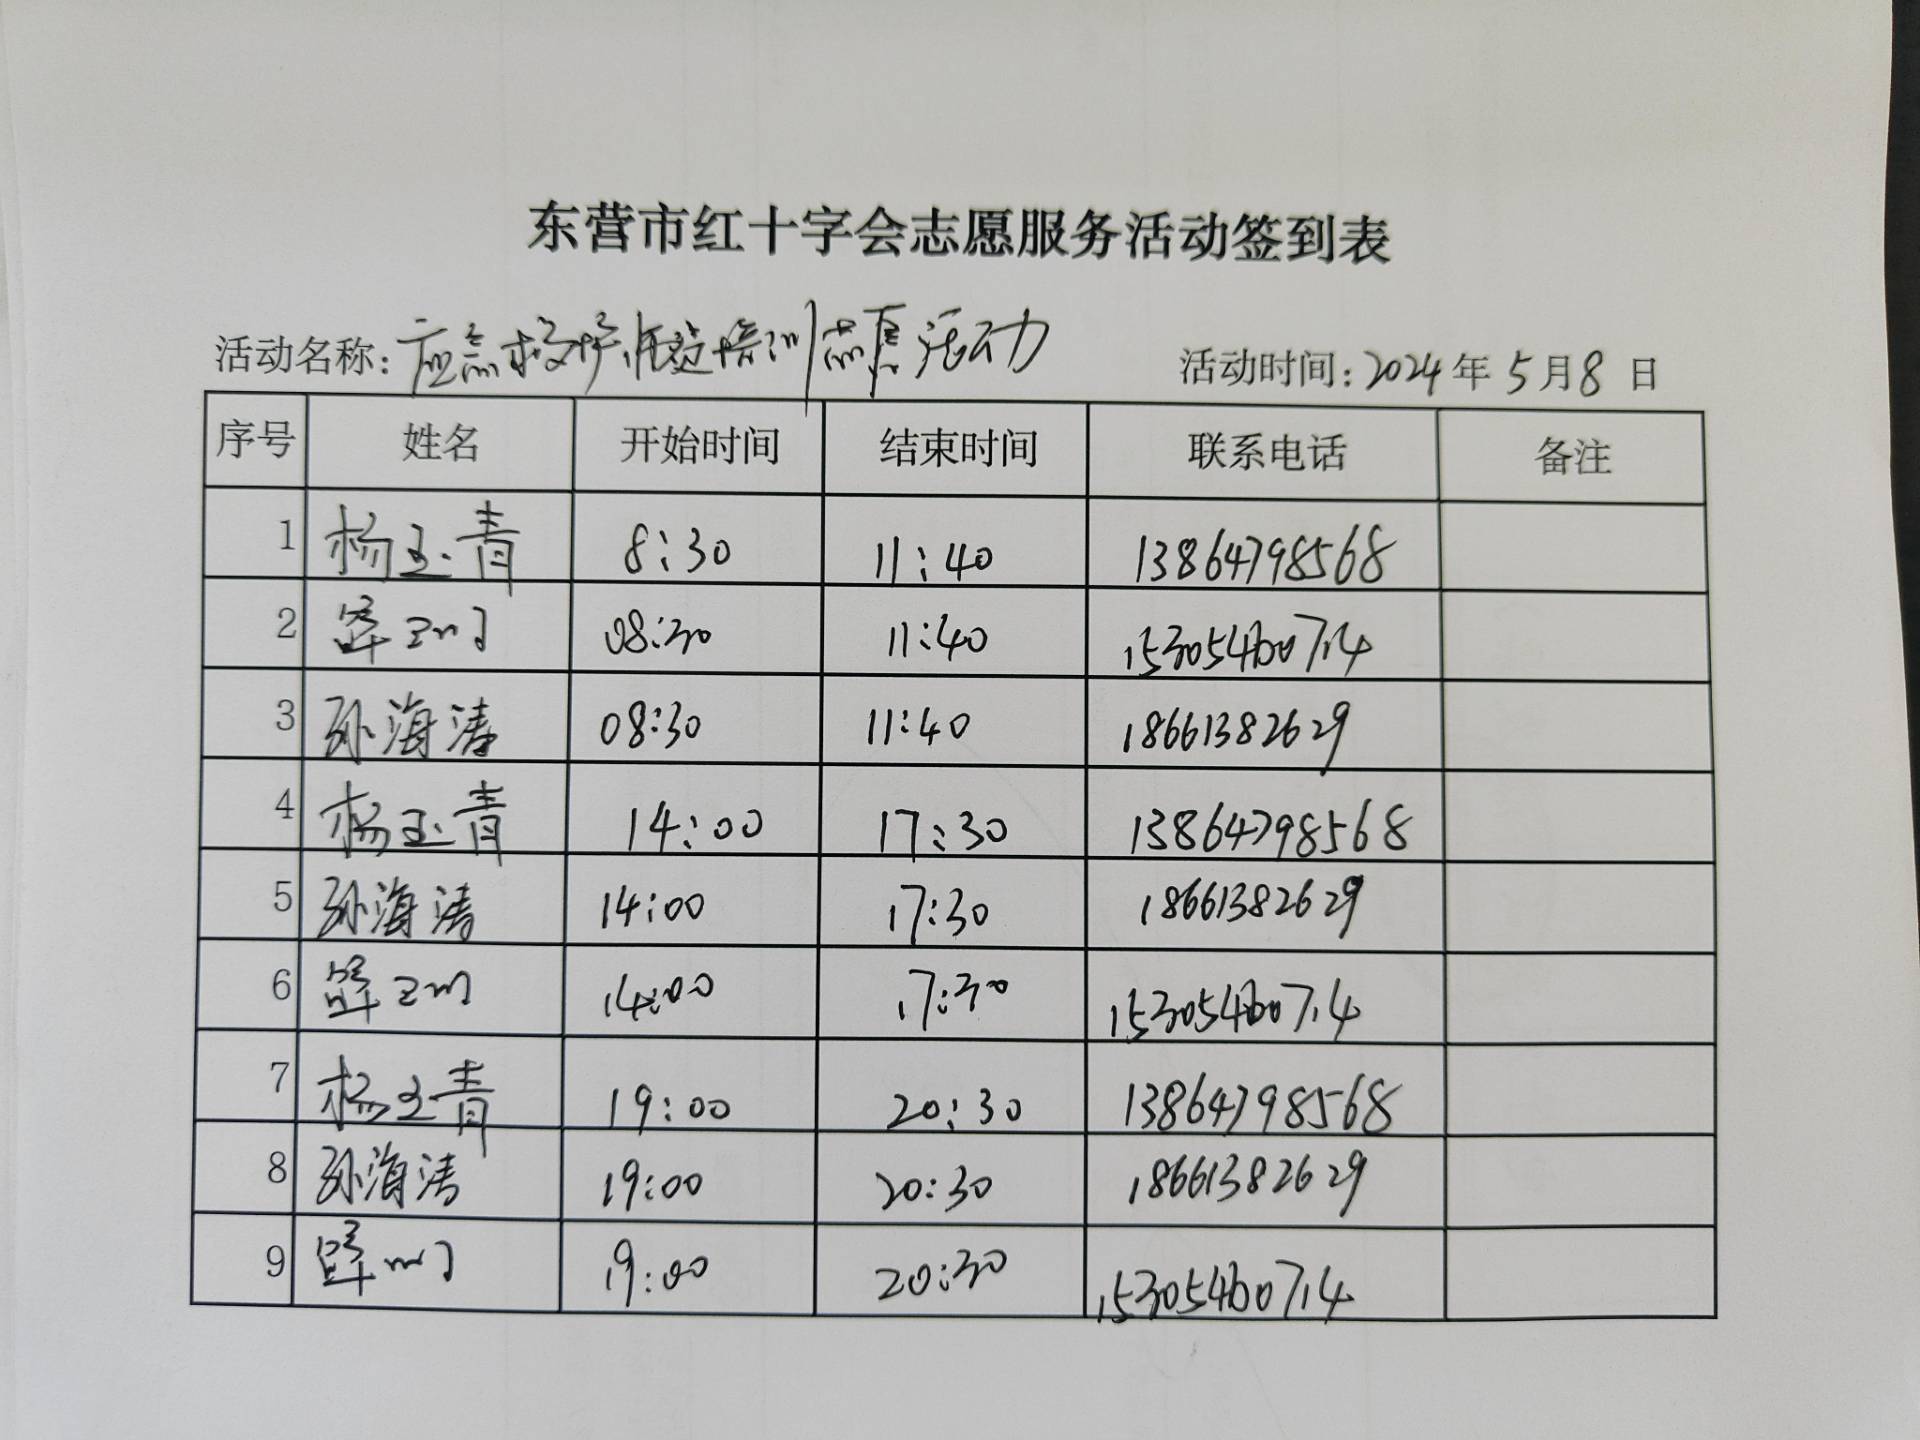 东营市红十字会志愿服务活动签到表
活动名称: 应急救护师资培训志愿活动 活动时间: 2024年5月8日
序号 姓名 开始时间 结束时间 联系电话 备注
1 杨玉青 8:30 11:40 13864798568
2 08:30 11:40 15305460714
3 孙海涛 08:30 11:40 18661382629
4 杨玉青 14:00 17:30 13864798568
5 孙海涛 14:00 17:30 18661382629
6 14:00 17:30 15305460714
7 杨玉青 19:00 20:30 13864798568
8 孙海涛 19:00 20:30 18661382629
9 19:00 20:30 15305460714